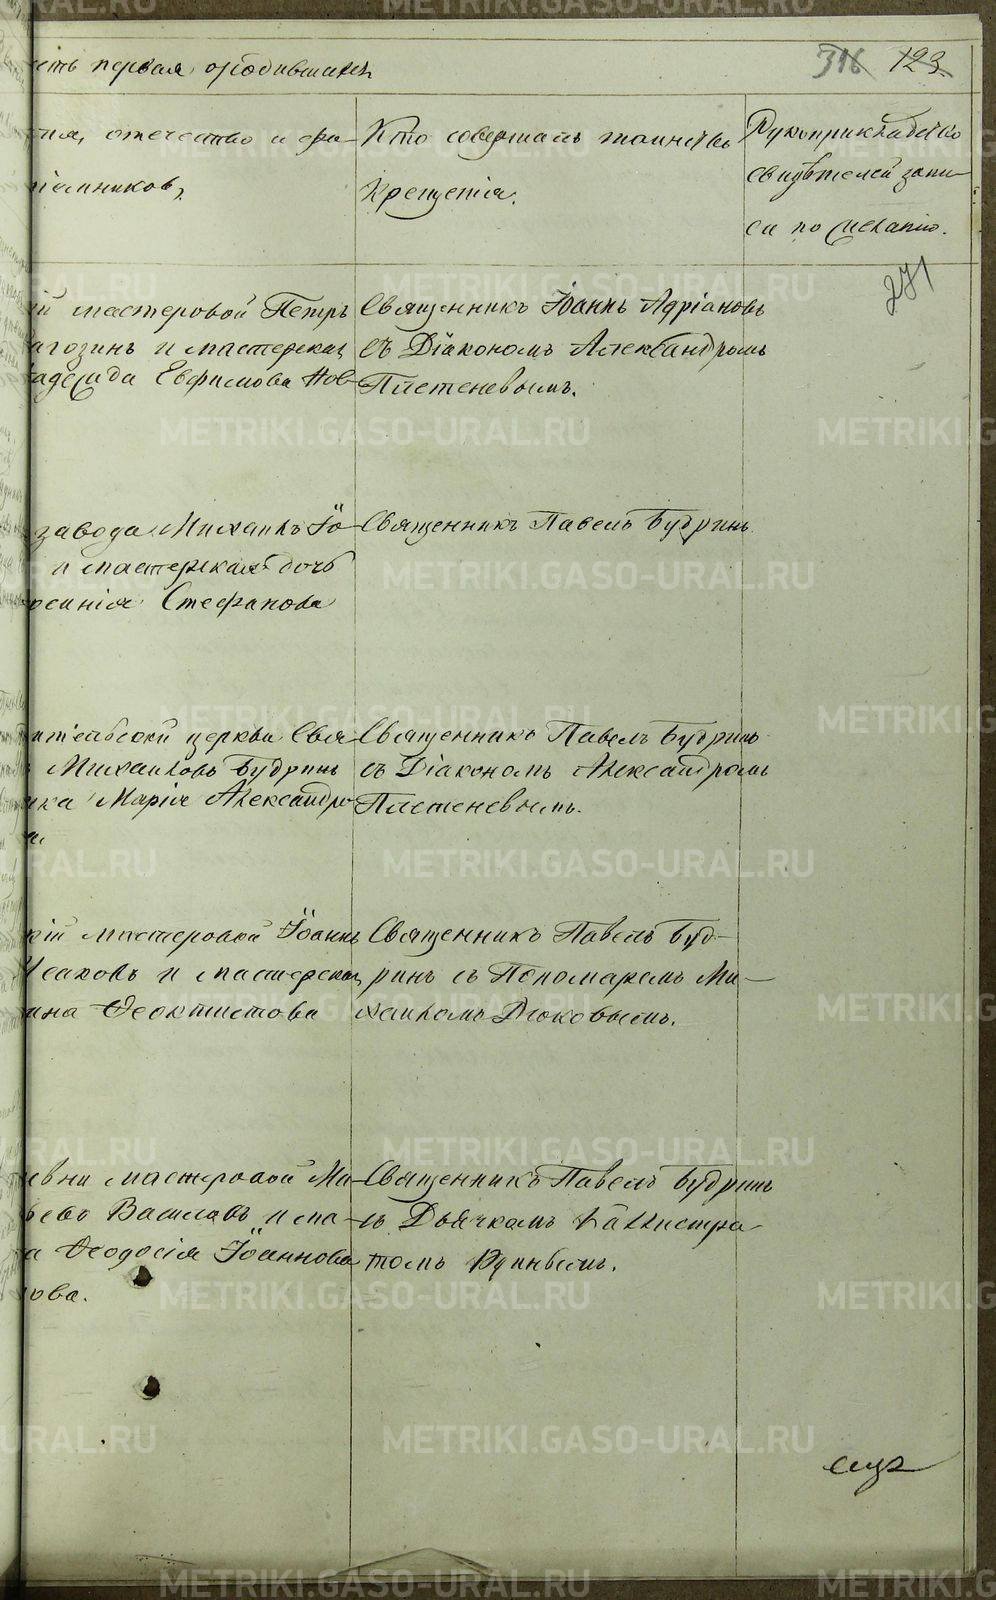 сть первая, о родившихся
316 123.
мя, отечество и фа-
ріемниковъ,
Кто совершалъ таинство
Крещенія.
Рукоприкладство
свидѣтелей запи-
си по желанію.
271
ій мастеровой Петръ
агозинъ и мастерская
адежда Евфимова Нов-
Священникъ Іоаннъ Адріановъ
съ Діакономъ Александромъ
Плетеневымъ.
завода Михаилъ Іо-
и мастерская дочь
сенія Стефанова
Священникъ Павелъ Будринъ
ительской церкви Свя-
Михаиловъ Будринъ
ика Марія Александро-
Священникъ Павелъ Будринъ
съ Діакономъ Александромъ
Плетеневымъ.
кій мастеровой Іоаннъ
Исаковъ и мастерская
ина Ѳеоктистова
Священникъ Павелъ Буд-
ринъ съ Пономаремъ Ми-
хаиломъ Рюковымъ.
евни мастеровой Ми-
ево Васильевъ и ма-
а Ѳеодосія Іоаннова
ова.
Священникъ Павелъ Будринъ
съ Дьячкомъ Каллистра-
томъ
METRIKI.GASO-URAL.RU